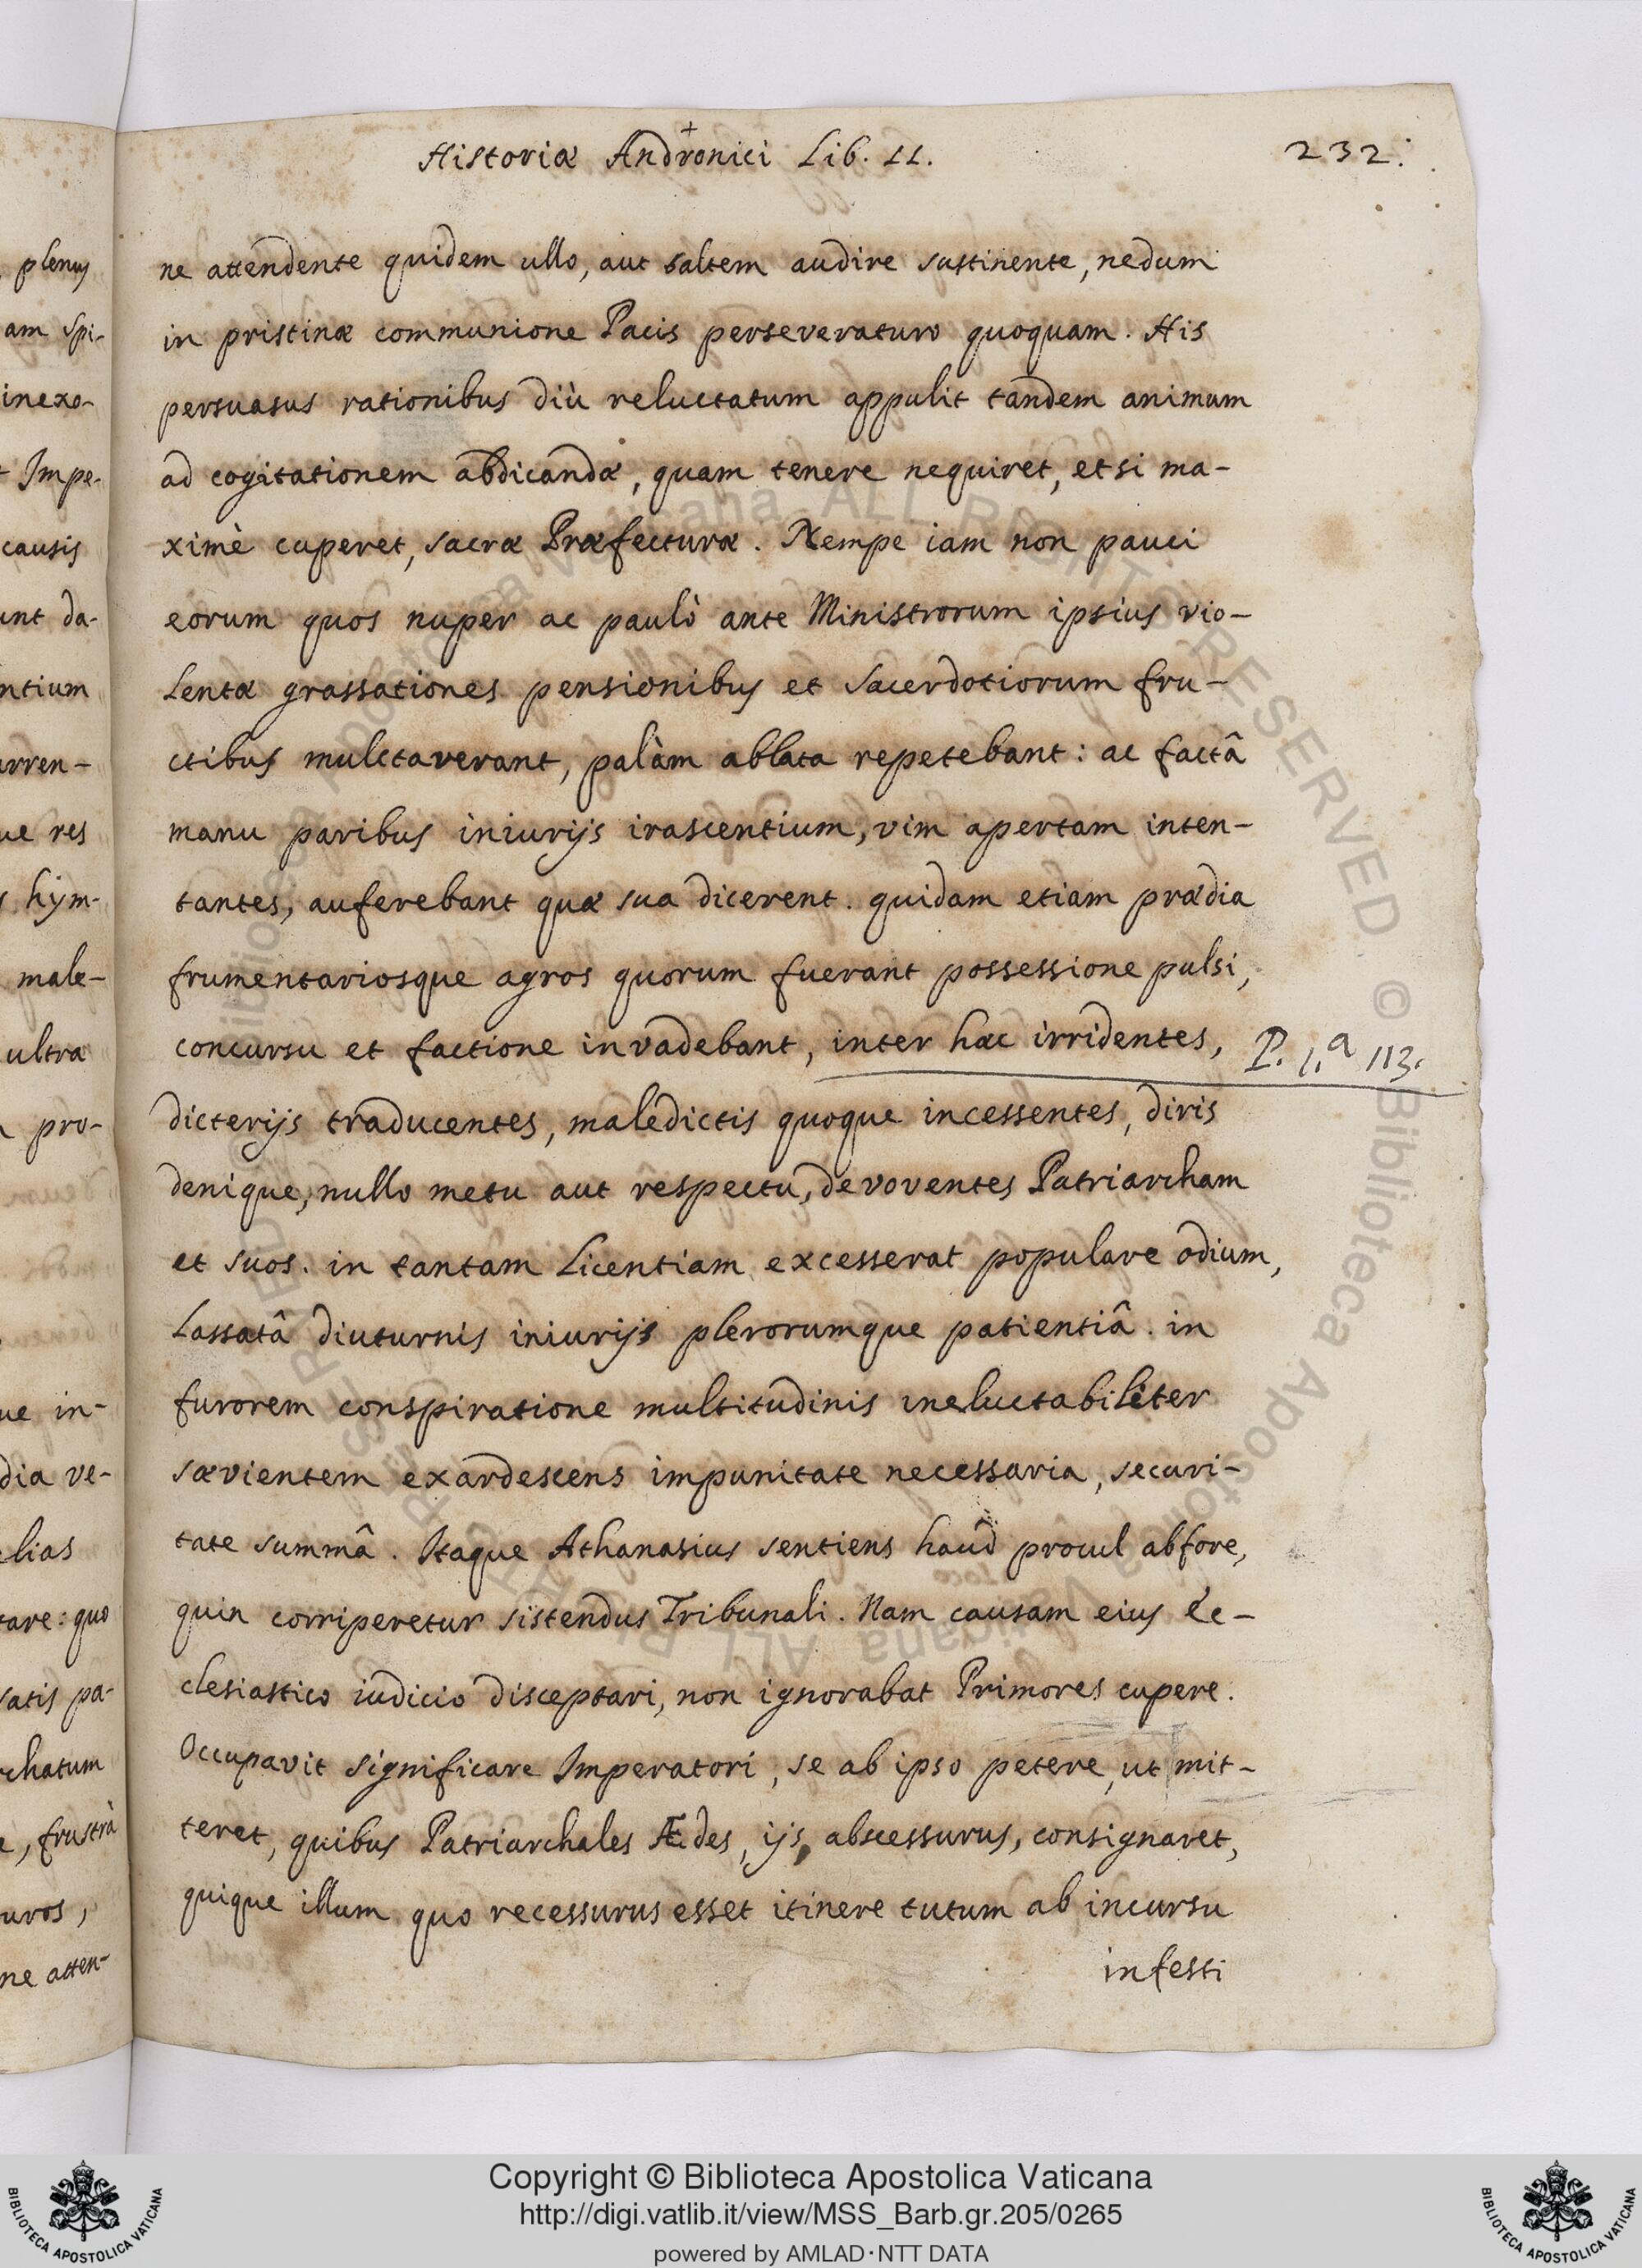 Historiæ Andronici Lib. II.
232.
ne attendente quidem ullo, aut saltem audire sustinente, nedum
in pristinæ communione Pacis perseveraturo quoquam. His
persuasus rationibus diù reluctatum appulit tandem animum
ad cogitationem abdicandæ, quam tenere nequiret, etsi ma-
ximè cuperet, sacræ Præfecturæ. Nempe iam non pauci
eorum quos nuper ac paulò ante Ministrorum ipsius vio-
lentæ grassationes pensionibus et Sacerdotiorum fru-
ctibus mulctaverant, palàm ablata repetebant: ac factâ
manu paribus iniurijs irascentium, vim apertam inten-
tantes, auferebant quæ sua dicerent. quidam etiam prædia
frumentariosque agros quorum fuerant possessione pulsi,
concursu et factione invadebant, inter hæc irridentes,
P. 1.ª 113.
dicterijs traducentes, maledictis quoque incessentes, diris
denique, nullo metu aut respectu, devoventes Patriarcham
et suos. in tantam licentiam excesserat populare odium,
lassatâ diuturnis iniurijs plerorumque patientiâ. in
furorem conspiratione multitudinis ineluctabiliter
sævientem exardescens impunitate necessaria, securi-
tate summâ. Itaque Athanasius sentiens haud procul abfore,
quin corriperetur sistendus Tribunali. Nam causam eius Ec-
clesiastico iudicio disceptari, non ignorabat Primores cupere.
Occupavit significare Imperatori, se ab ipso petere, ut mit-
teret, quibus Patriarchales Ædes, ijs, abscessurus, consignaret,
quique illum quo recessurus esset itinere tutum ab incursu
infesti
plenus
am Spi-
inexo-
t Impe-
causis
unt da-
ntium
urren-
ue res
hym-
male-
ultra
pro-
ue in-
dia ve-
elias
tare: quo
satis pa-
rchatum
e, frustrà
uros,
ne atten-
Copyright © Biblioteca Apostolica Vaticana
http://digi.vatlib.it/view/MSS_Barb.gr.205/0265
powered by AMLAD·NTT DATA
BIBLIOTECA APOSTOLICA VATICANA
BIBLIOTECA APOSTOLICA VATICANA